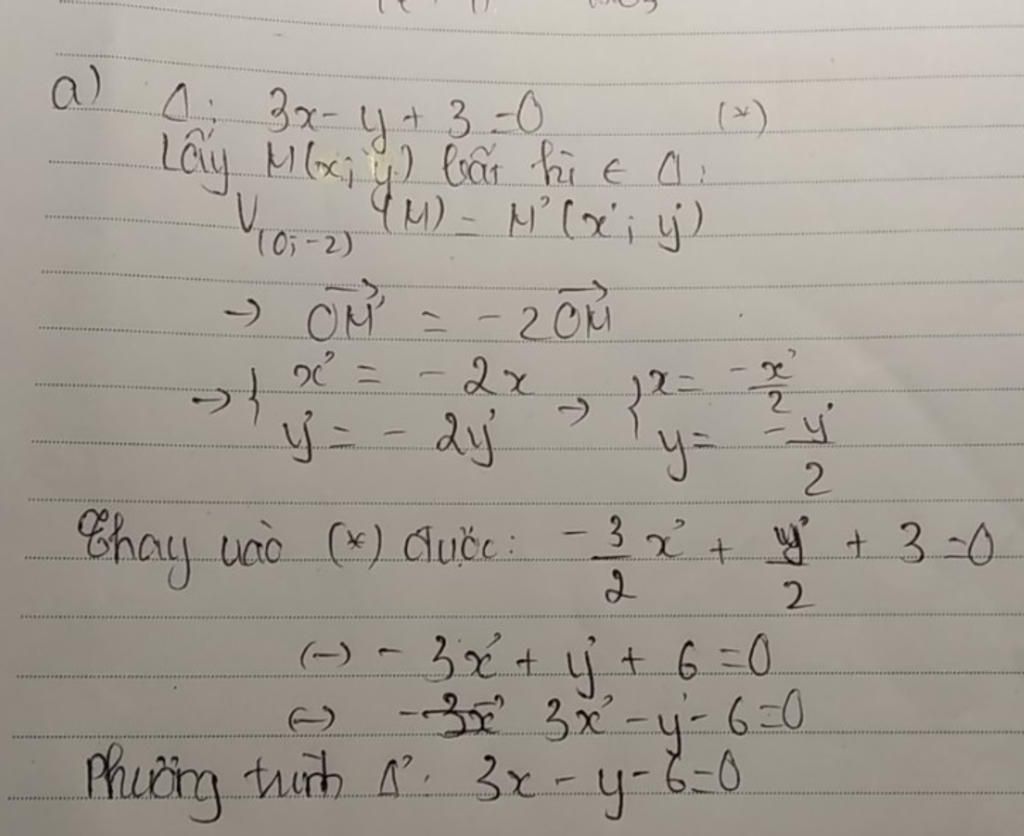 a) Δ: 3x - y + 3 = 0 (*)
Lấy M(x; y) bất kì ∈ Δ:
V(0; -2) (M) = M'(x'; y')
→ OM' = -2OM
→ { x' = -2x → { x = -x'/2
y' = -2y' y = -y'/2
Thay vào (*) được: -3/2 x' + y'/2 + 3 = 0
(-) - 3x' + y' + 6 = 0
(-) 3x' - y' - 6 = 0
Phương trình Δ': 3x - y - 6 = 0